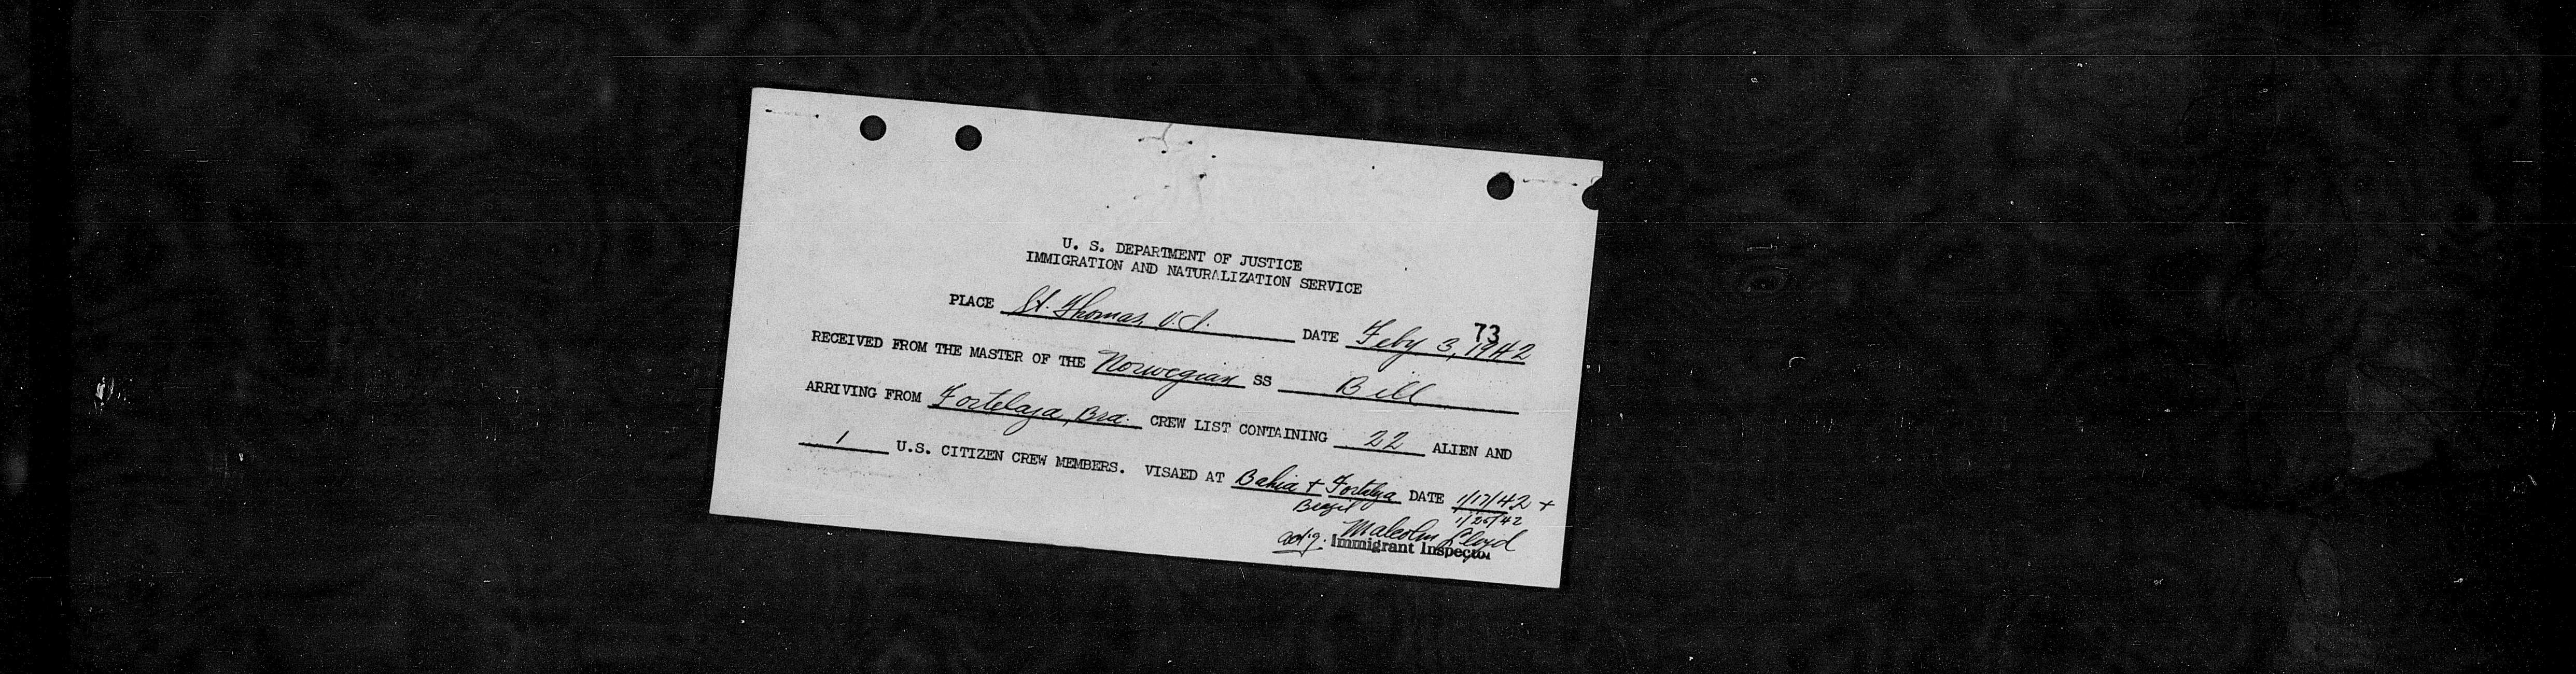 U. S. DEPARTMENT OF JUSTICE
IMMIGRATION AND NATURALIZATION SERVICE
73
PLACE St. Thomas, V. I. DATE Feby 3, 1942
RECEIVED FROM THE MASTER OF THE Norwegian SS Bill
ARRIVING FROM Fortelaza, Bra. CREW LIST CONTAINING 22 ALIEN AND
1 U.S. CITIZEN CREW MEMBERS. VISAED AT Bahia + Fortelza DATE 1/17/42 +
Brazil 1/25/42
Malcolm Lloyd
actg. Immigrant Inspector